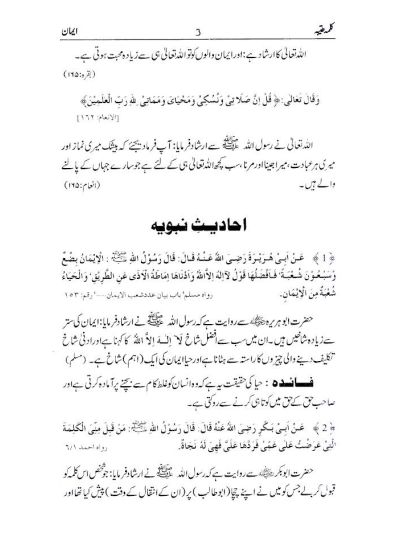 کلمہ طیبہ 3 ایمان
اللہ تعالیٰ کا ارشاد ہے: اور ایمان والوں کو تو اللہ تعالیٰ ہی سے زیادہ محبت ہوتی ہے۔
(بقرہ: ۱۶۵)
وَقَالَ تَعَالٰی: ﴿ قُلْ اِنَّ صَلَا تِیْ وَنُسُکِیْ وَمَحْیَایَ وَمَمَاتِیْ لِلّٰہِ رَبِّ الْعٰلَمِیْنَ﴾
[الانعام: ۱۶۲]
اللہ تعالیٰ نے رسول اللہ ﷺ سے ارشاد فرمایا: آپ فرما دیجئے کہ بیشک میری نماز اور
میری ہر عبادت، میرا جینا اور مرنا، سب کچھ اللہ تعالیٰ ہی کے لئے ہے جو سارے جہاں کے پالنے
والے ہیں۔ (انعام: ۱۶۵)
احادیثِ نبویہ
﴿ 1 ﴾ عَنْ اَبِیْ ھُرَیْرَۃَ رَضِیَ اللّٰہُ عَنْہُ قَالَ: قَالَ رَسُوْلُ اللّٰہِ ﷺ: اَلْاِیْمَانُ بِضْعٌ
وَسَبْعُوْنَ شُعْبَۃً، فَاَفْضَلُھَا قَوْلُ لَآ اِلٰہَ اِلَّا اللّٰہُ وَاَدْنَاھَا اِمَاطَۃُ الْاَذٰی عَنِ الطَّرِیْقِ، وَالْحَیَاءُ
شُعْبَۃٌ مِنَ الْاِیْمَانِ۔ رواہ مسلم، باب بیان عدد شعب الایمان....، رقم: ۱۵۳
حضرت ابوہریرہ ؓ سے روایت ہے کہ رسول اللہ ﷺ نے ارشاد فرمایا: ایمان کی ستر
سے زیادہ شاخیں ہیں۔ ان میں سب سے افضل شاخ لَآ اِلٰہَ اِلَّا اللّٰہُ کا کہنا ہے اور ادنیٰ شاخ
تکلیف دینے والی چیزوں کا راستہ سے ہٹانا ہے اور حیا ایمان کی ایک (اہم) شاخ ہے۔ (مسلم)
فائدہ: حیا کی حقیقت یہ ہے کہ وہ انسان کو غلط کام سے بچنے پر آمادہ کرتی ہے اور
صاحبِ حق کے حق میں کوتاہی کرنے سے روکتی ہے۔
﴿ 2 ﴾ عَنْ اَبِیْ بَکْرٍ رَضِیَ اللّٰہُ عَنْہُ قَالَ: قَالَ رَسُوْلُ اللّٰہِ ﷺ: مَنْ قَبِلَ مِنِّی الْکَلِمَۃَ
الَّتِیْ عَرَضْتُ عَلٰی عَمِّیْ فَرَدَّھَا عَلَیَّ فَھِیَ لَہٗ نَجَاۃٌ۔ رواہ احمد ۶/۱
حضرت ابوبکر ؓ سے روایت ہے کہ رسول اللہ ﷺ نے ارشاد فرمایا: جو شخص اس کلمہ کو
قبول کرلے جس کو میں نے اپنے چچا (ابوطالب) پر (ان کے انتقال کے وقت) پیش کیا تھا اور